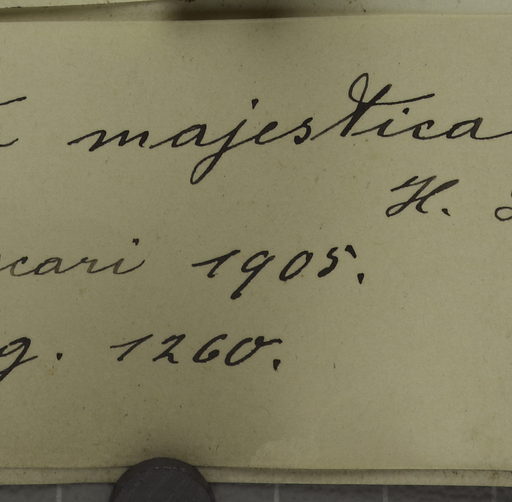 majestica
H.
cari 1905.
g. 1260.